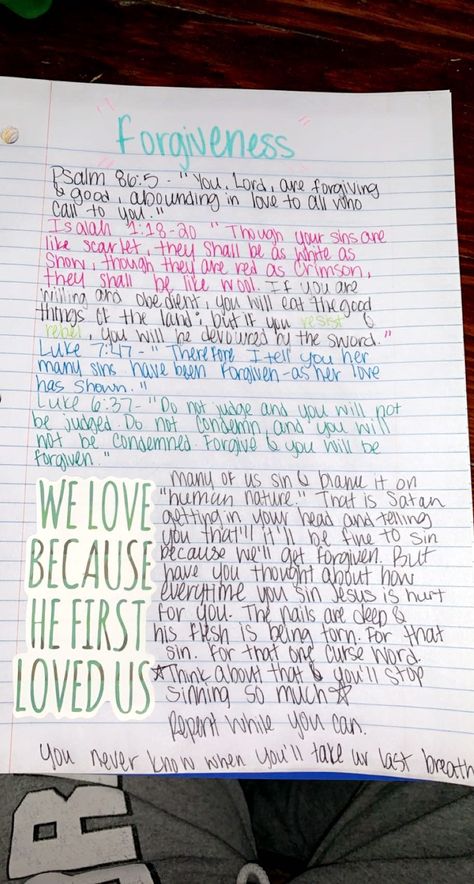 Forgiveness
Psalm 86:5 - "You, Lord, are forgiving
& good, abounding in love to all who
call to you."
Isaiah 1:18-20 "Though your sins are
like scarlet, they shall be as white as
snow, though they are red as crimson,
they shall be like wool. If you are
willing and obedient, you will eat the good
things of the land; but if you resist &
rebel, you will be devoured by the sword."
Luke 7:47 - "Therefore I tell you her
many sins have been forgiven - as her love
has shown."
Luke 6:37 - "Do not judge and you will not
be judged. Do not condemn, and you will
not be condemned. Forgive & you will be
forgiven."
WE LOVE
BECAUSE
HE FIRST
LOVED US
many of us sin & blame it on
"human nature." That is Satan
getting in your head and telling
you that'll it'll be fine to sin
because we'll get forgiven. But
have you thought about how
everytime you sin Jesus is hurt
for you. The nails are deep &
his flesh is being torn. For that
sin. For that one curse word.
☆Think about that & you'll stop
sinning so much☆
Repent while you can.
you never know when you'll take ur last breath